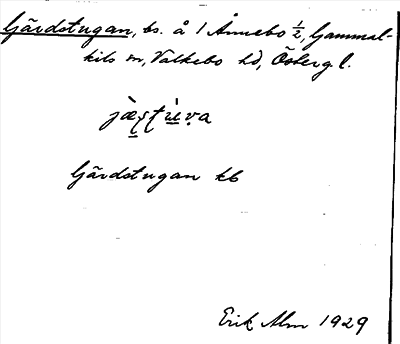 Gärdstugan, bs. å 1 Ånnebo ½, Gammal-
kils sn, Valkebo hd, Östergl.
jæ̀ʂʈùva
Gärdstugan kb
Erik Alm 1929